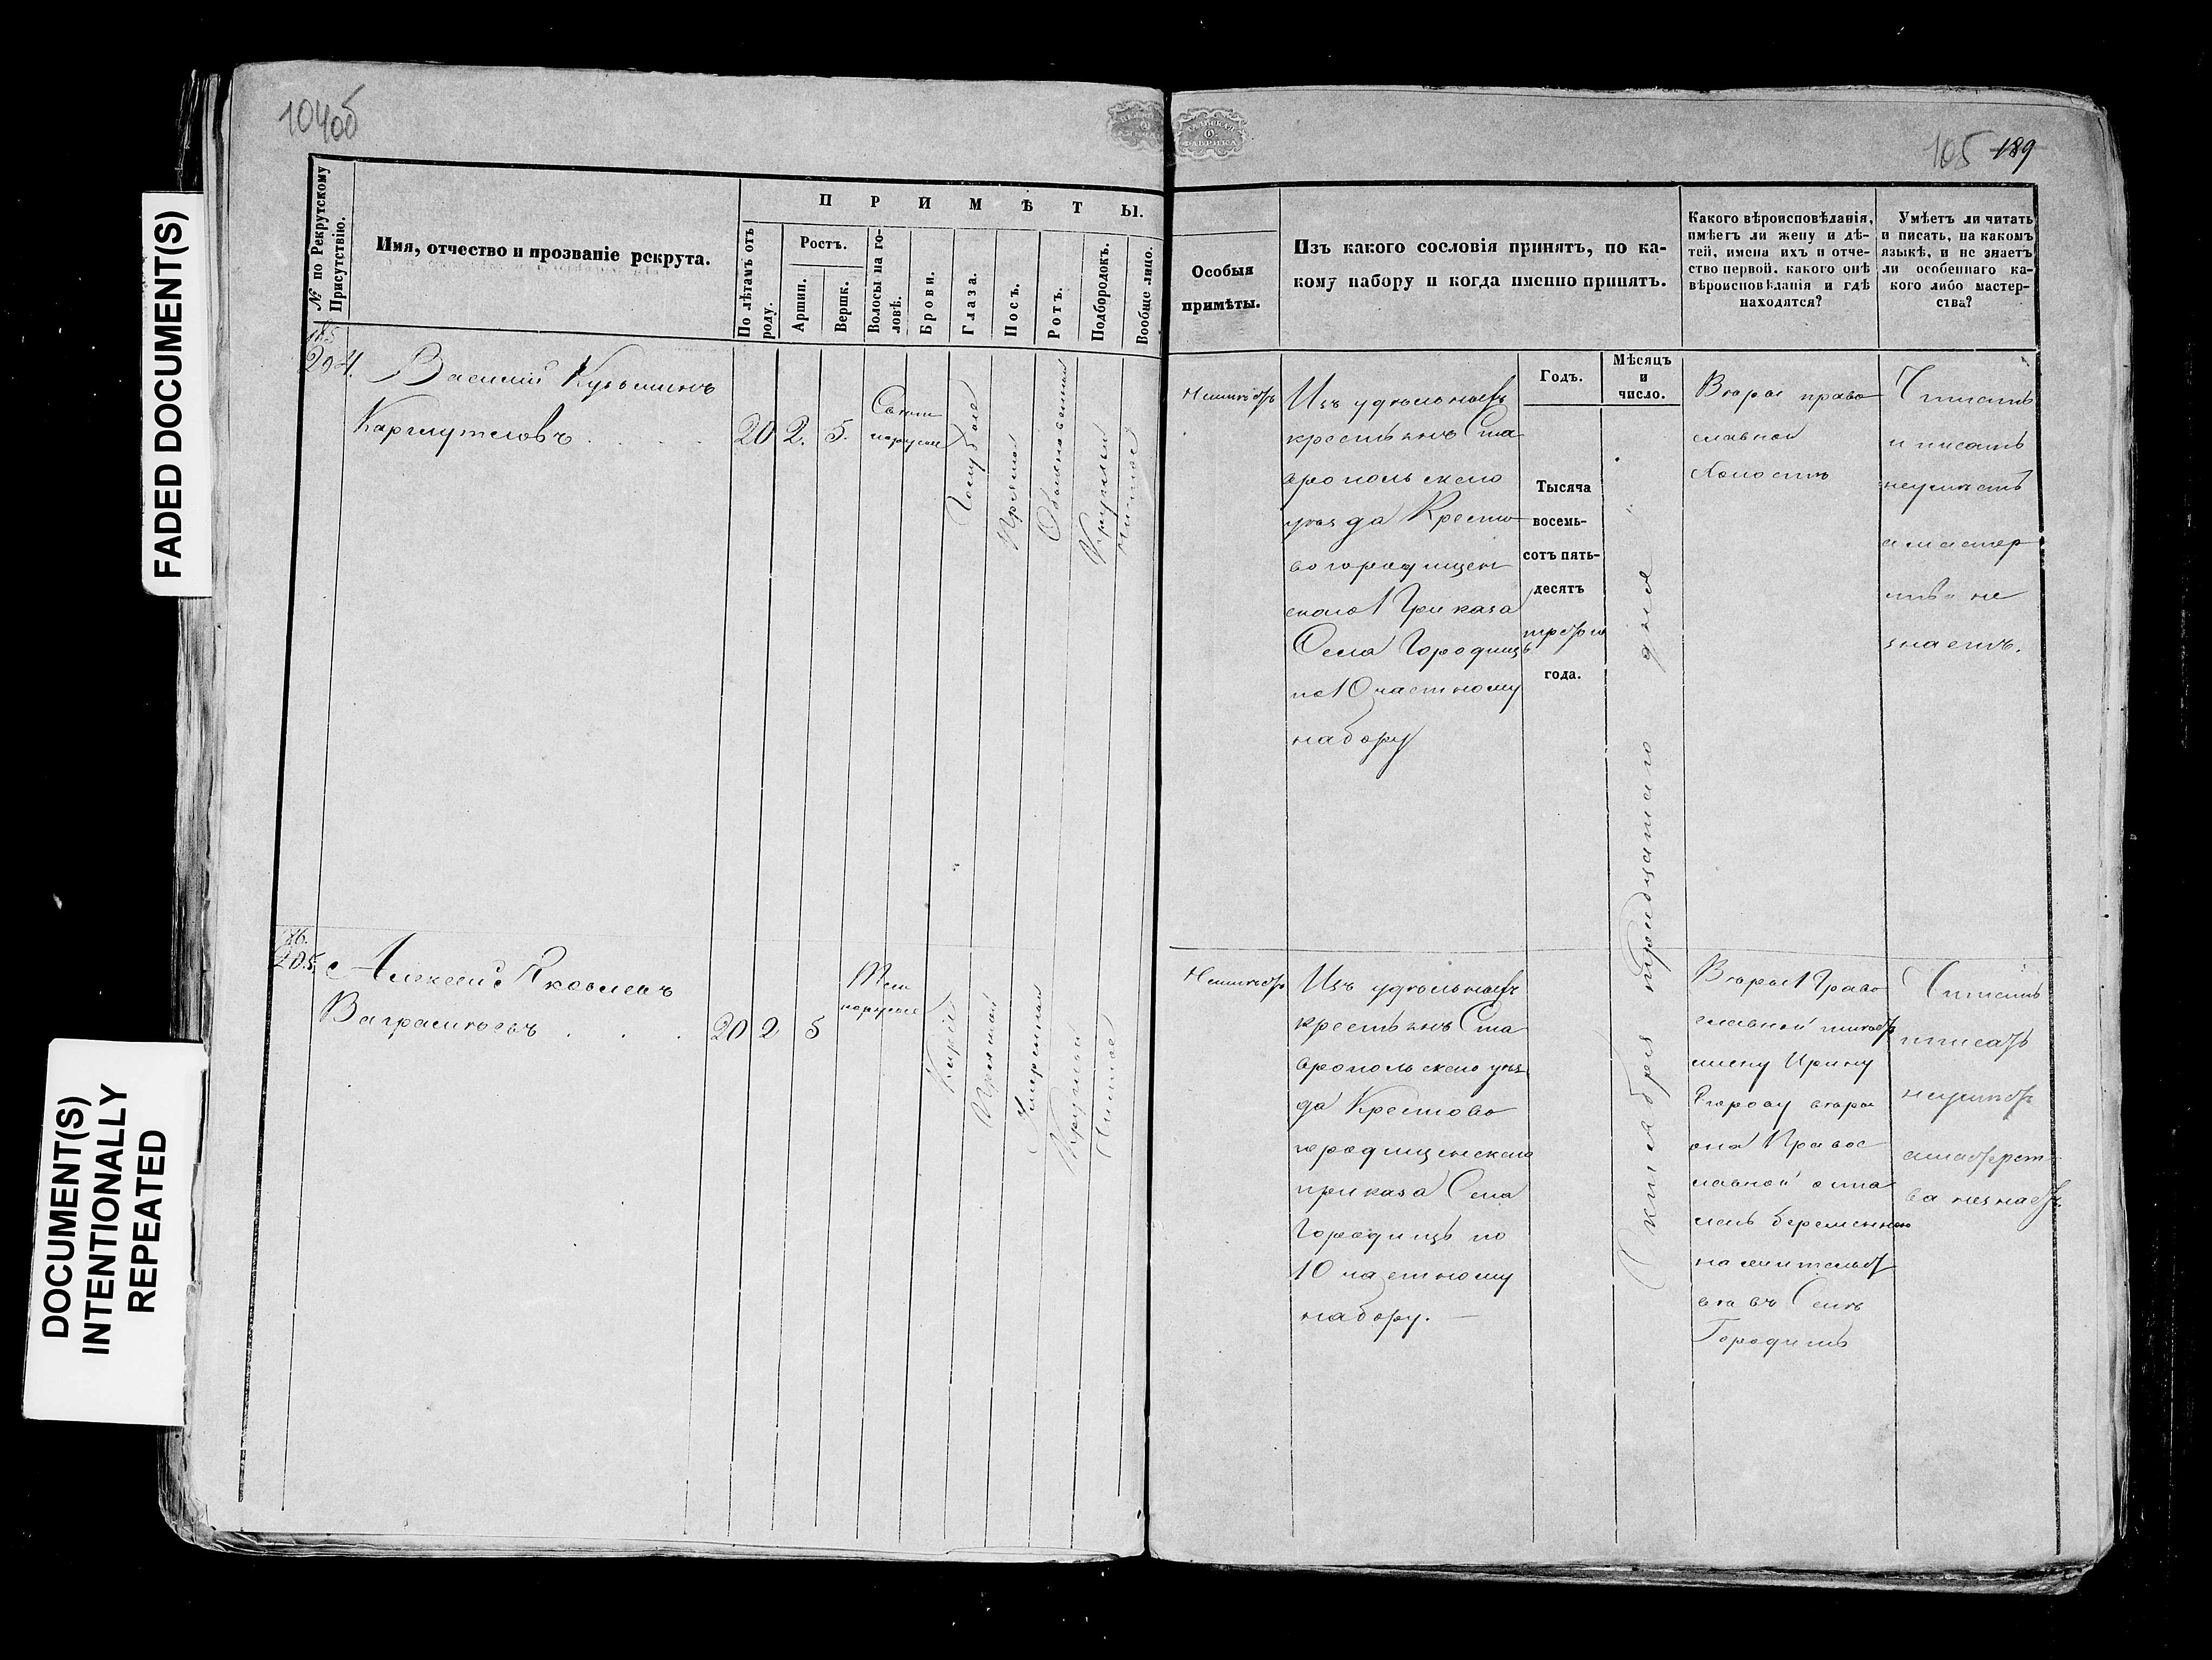 FADED DOCUMENT(S)
DOCUMENT(S)
INTENTIONALLY
REPEATED
104об
105 189
№ по Рекрутскому
Присутствію.
Имя, отчество и прозваніе рекрута.
ПРИМѢТЫ.
По лѣтамъ отъ
роду.
Ростъ.
Аршин.
Вершк.
Волосы на го-
ловѣ.
Брови.
Глаза.
Носъ.
Ротъ.
Подбородокъ.
Вообще лицо.
Особыя
примѣты.
Изъ какого сословія принятъ, по ка-
кому набору и когда именно принятъ.
Какого вѣроисповѣданія,
имѣетъ ли жену и дѣ-
тей, имена ихъ и отче-
ство первой, какого онѣ
вѣроисповѣланія и гдѣ
находятся?
Умѣетъ ли читать
и писать, на какомъ
языкѣ, и не знаетъ
ли особеннаго ка-
кого либо мастер-
ства?
Годъ.
Мѣсяцъ
и
число.
185
204.
Василий Кузьминъ
20 2. 5.
Светло
русые
Голубые
Прямой
Обыкновенный
Круглый
Чистое
Неимеетъ
Изъ удельныхъ
крестьянъ Ста
вропольскаго
уезда Кресто
во городищен
скаго Приказа
Села Городищь
по 10 частному
набору
Тысяча
восемь-
сотъ пять-
десятъ
третьяго
года.
Декабря тридцатаго дня
Веры право
славной
Холостъ
Читать
и писать
неумеетъ
а мастер
ства не
знаетъ.
186.
205.
Алексей Яковлевъ
20 2 5
Темно
русые
Карие
Прямой
Умеренный
Круглый
Чистое
Неимеетъ
Изъ удельныхъ
крестьянъ Ста
вропольскаго уез
да Крестово
городищенскаго
приказа Села
Городищь по
10 частному
набору. —
Веры Право
славной имеетъ
жену Ирину
Егорову веры
она Правос
лавной оста
лась беременною
на жительст
ве въ Селе
Городищь
Читать
и писать
неумеетъ
а мастерст
ва незнаетъ.